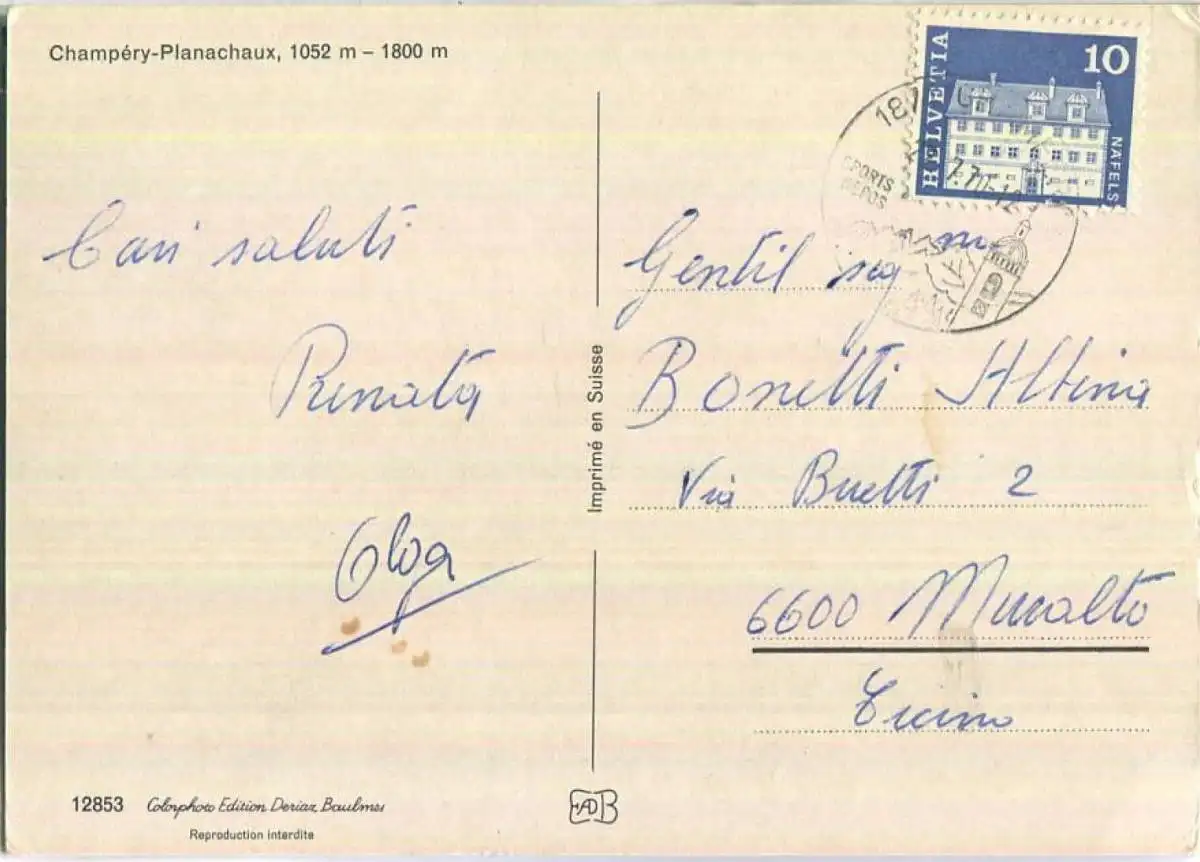 Champéry-Planachaux, 1052 m – 1800 m
HELVETIA
10
NÄFELS
SPORTS
REPOS
Cari saluti
Renata
Olga
Imprimé en Suisse
Gentil sig
Bonetti Altina
Via Buetti 2
6600 Muralto
Ticino
12853 Colorphoto Edition Deriaz Baulmes
Reproduction interdite